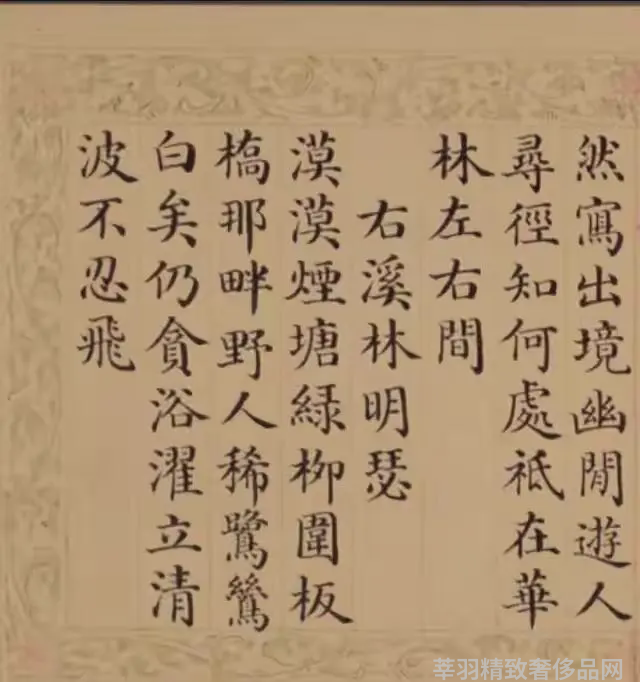 然寫出境幽閒遊人
尋徑知何處祗在華
林左右間
右溪林明瑟
漠漠煙塘緑栁圍板
橋那畔野人稀鷺鷥
白矣仍貪浴濯立清
波不忍飛
莘羽精致奢侈品网